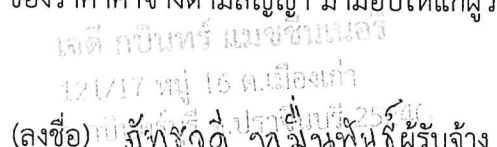 ของราคาค่าจ้างตามสัญญา มามอบให้แก่ผู้ว
เจดี กบินทร์ แมชชีนเนอรี่
121/17 หมู่ 16 ต.เมืองเก่า
ปราจีนบุรี 25240
(ลงชื่อ) ผู้รับจ้าง